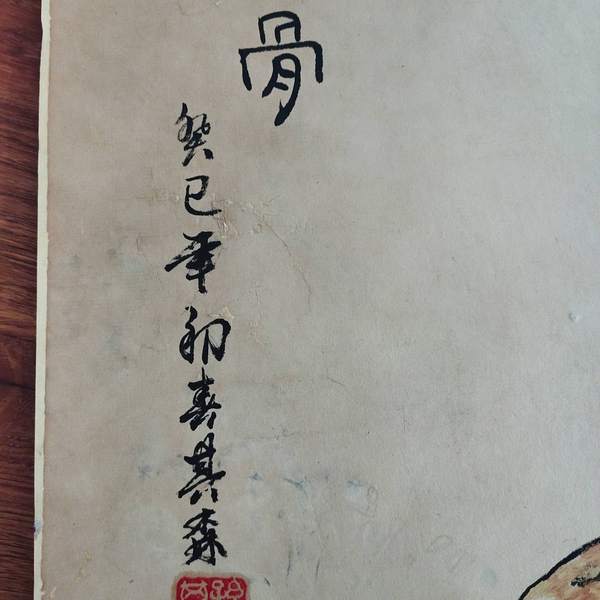 骨
癸巳年初春其森